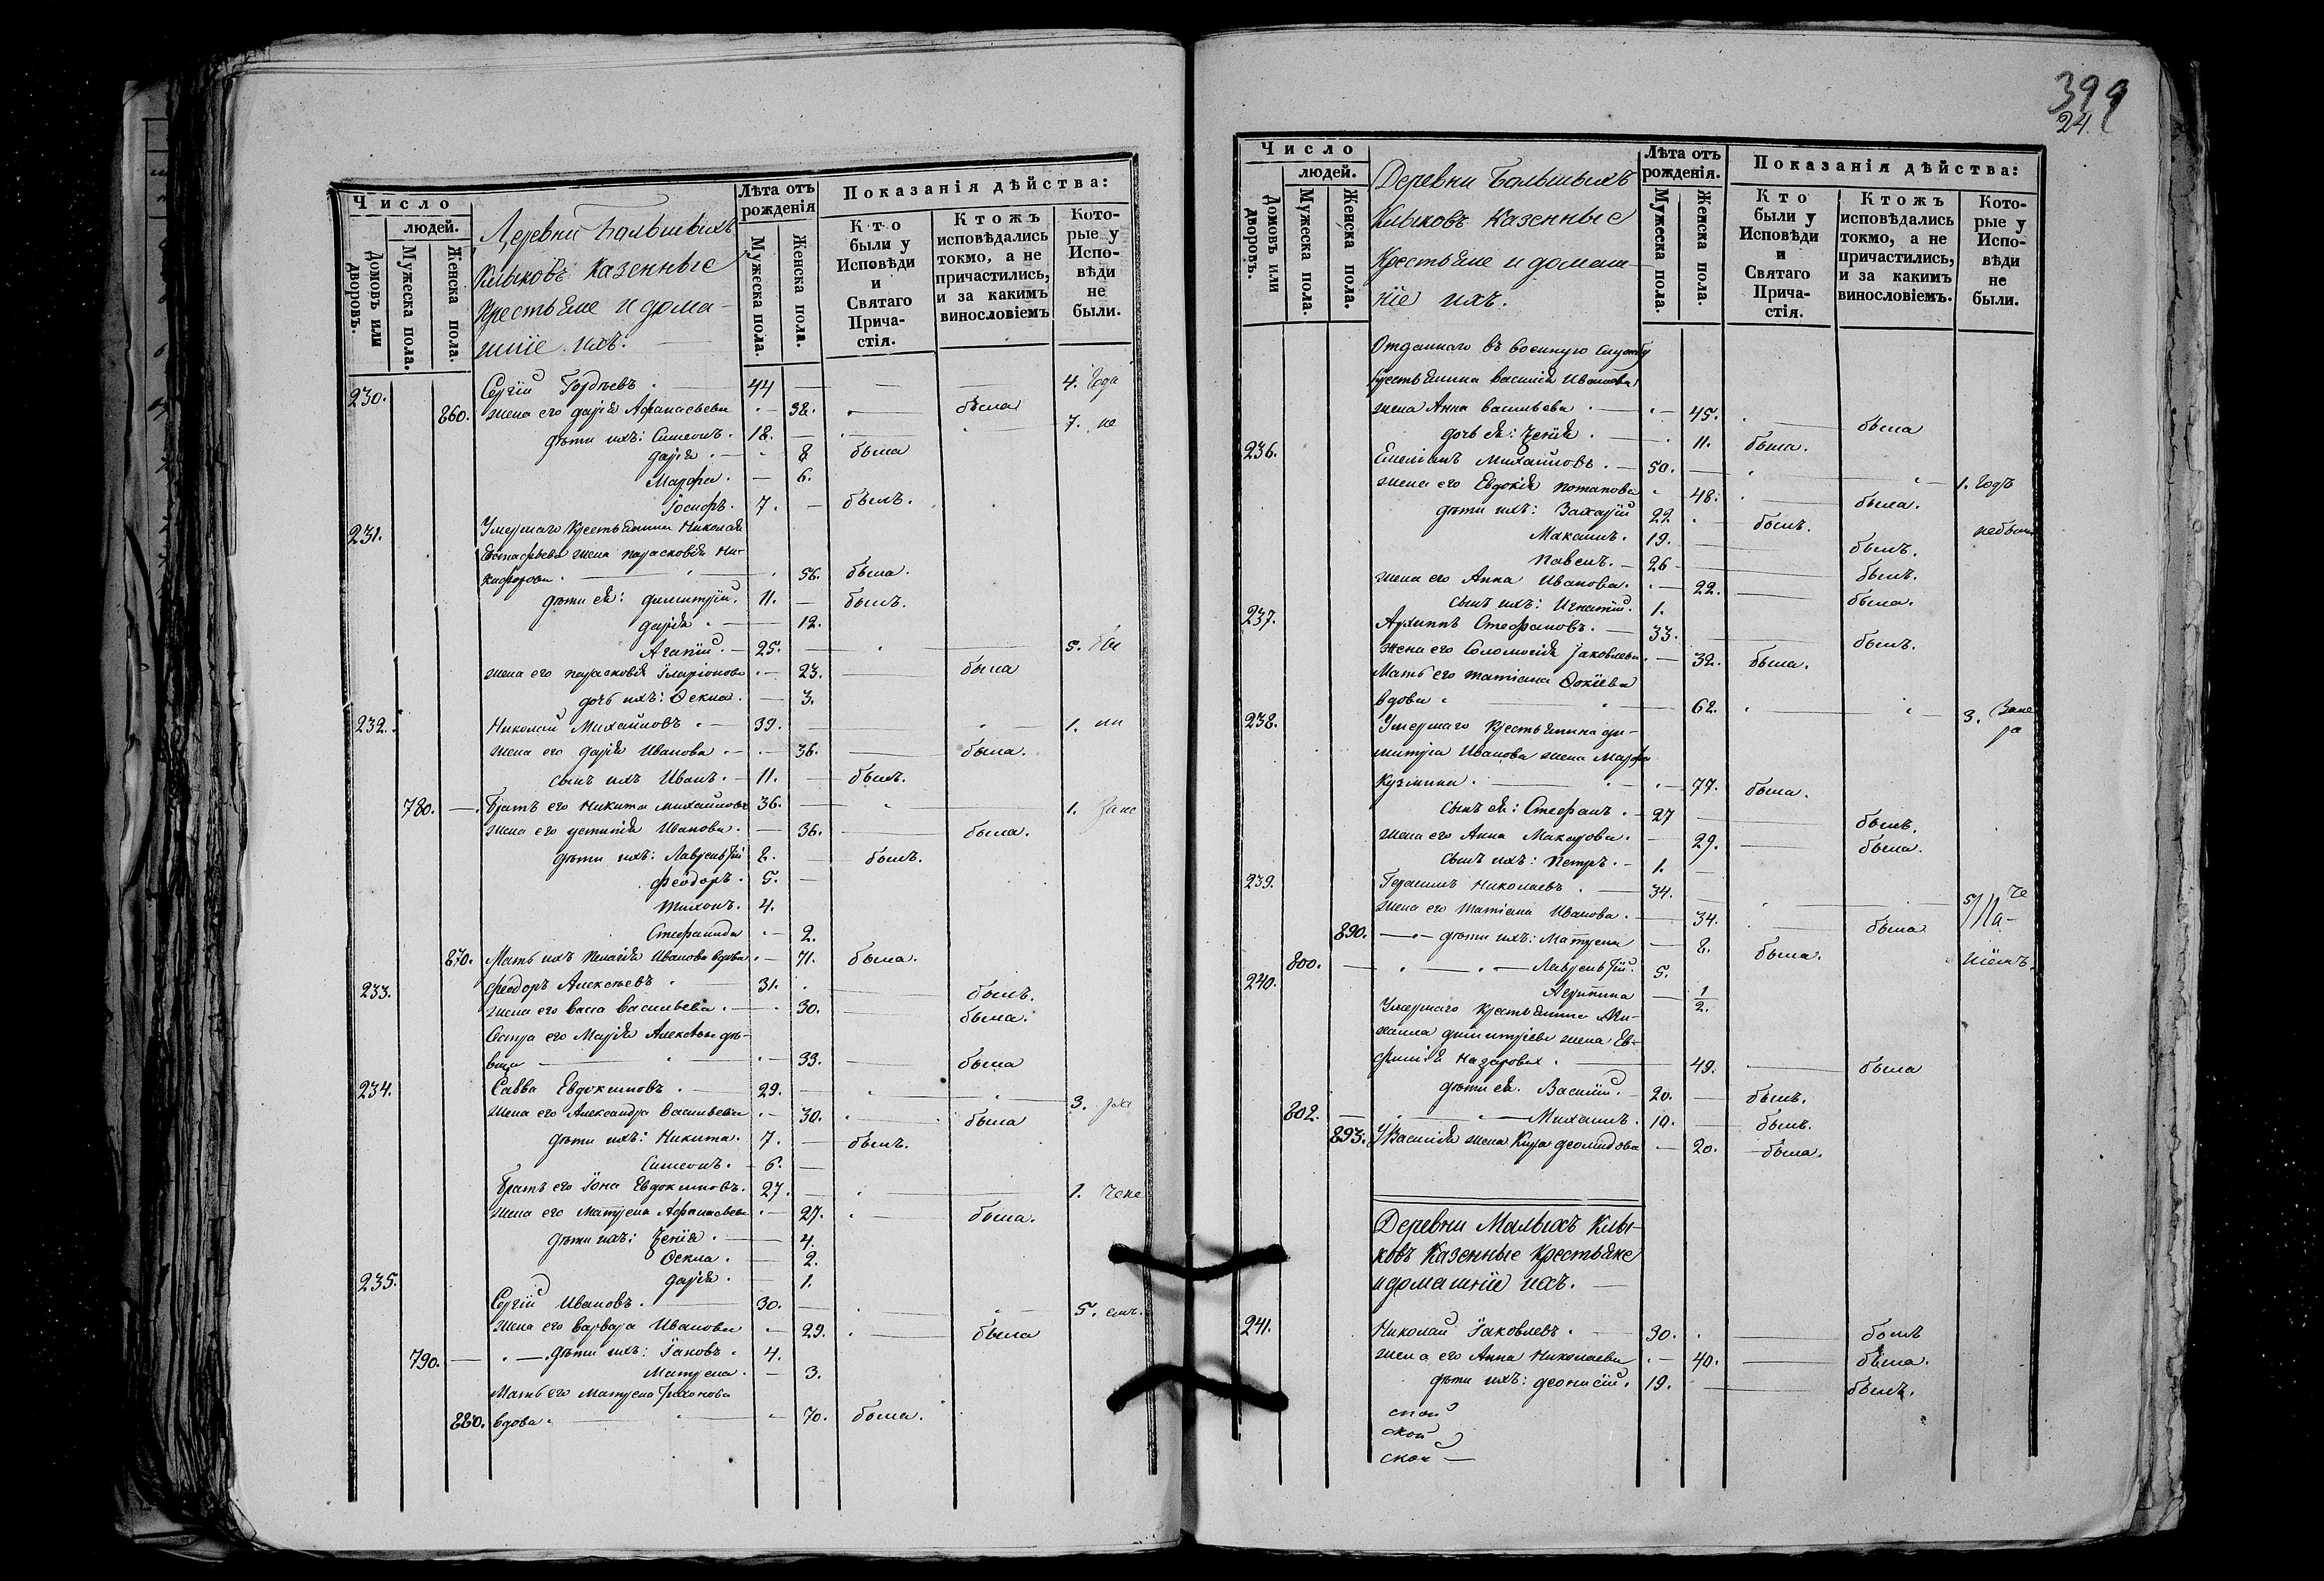 Число
людей.
Домовъ или дворовъ.
Мужеска пола.
Женска пола.
Деревни Большихъ
Клыковъ Казенные
Крестьяне и дома-
шніе ихъ.
Лѣта отъ рожденія
Мужеска пола.
Женска пола.
Показанія дѣйства:
Кто были у Исповѣди и Святаго Прича-стія.
Ктожъ исповѣдались токмо, а не причастились, и за какимъ винословіемъ
Кото-рые у Испо-вѣди не были.
230. Сергій Гордѣевъ 44 — 4. года
860. жена его Дарія Афанасьева — 38. была
дѣти ихъ: Симеонъ. 18. — 7. не
Дарія — 8 была
Марфа. — 6.
Іосифъ. 7. — былъ.
231. Умершаго Крестьянина Николая
Евстафьева жена Парасковія Ни-
кифорова. 58. была.
дѣти ея: Димитрій. 11. — былъ.
Дарія — 12.
Агапій. — 25. 5.
жена его Парасковія Иларіонова — 23. была
дочь ихъ: Ѳекла. — 3.
232. Николай Михайловъ 39. 1.
жена его Дарія Иванова — 36. была.
сынъ ихъ Иванъ. 11. — былъ.
780. — Братъ его Никита Михайловъ 36. — 1.
жена его Устинія Иванова. — 36. была.
дѣти ихъ: Лаврентій 8. — былъ.
Феодоръ. 5. —
Тихонъ. 4.
Стефанида — 2.
870. Мать ихъ Пелагія Иванова вдова — 71. была.
233. Феодоръ Алексѣевъ 31. былъ.
жена его Васса Васильева. — 30. была.
Сестра его Марія Алексѣева дѣ-
вица — 33. была
234. Савва Евдокимовъ. 29. — 3.
жена его Александра Васильева — 30. была
дѣти ихъ: Никита. 7. — былъ.
Симеонъ. 6. —
Братъ его Іона Евдокимовъ. 27. — 1.
жена его Матрена Афанасьева — 27. была.
дѣти ихъ: Ксенія. — 4.
Ѳекла. — 2.
Дарія. — 1.
235. Сергій Ивановъ. 30. — 5.
жена его Варвара Иванова — 29. была
790. — дѣти ихъ: Іаковъ. 4.
Матрена. — 3.
Мать его Матрена Тихонова
880. вдова. — 70. была.
399
24.
Число
людей.
Домовъ или дворовъ.
Мужеска пола.
Женска пола.
Деревни Большихъ
Клыковъ Казенные
Крестьяне и домаш-
ніе ихъ.
Лѣта отъ рожденія.
Мужеска пола.
Женска пола.
Показанія дѣйства:
Кто были у Исповѣди и Святаго Прича-стія.
Ктожъ исповѣдались токмо, а не причастились, и за какимъ винословіемъ.
Кото-рые у Испо-вѣди не были.
Отданнаго въ военную службу
Крестьянина Василія Иванова
жена Анна Васильева. — 45. была
дочь ея: Ксенія. 11. была.
236. Емеліанъ Михайловъ. — 50. — 1. годъ
жена его Евдокія Потапова 48. была.
дѣти ихъ: Захарій 22 былъ. небыли
Максимъ. 19. былъ.
Павелъ. — 26 былъ.
жена его Анна Иванова. — 22. была.
сынъ ихъ: Игнатій. 1.
237. Архиппъ Стефановъ. — 33. былъ.
жена его Соломонія Іаковлева — 32. была.
Мать его Татіана Фокіева
вдова 62. 3.
238. Умершаго Крестьянина Ди-
митрія Иванова жена Марфа
Кузмина. — 77. была.
сынъ ея: Стефанъ. 27 былъ.
жена его Анна Макарова. — 29. была.
сынъ ихъ: Петръ. 1. —
239. Герасимъ Николаевъ. 34. 5
жена его Татіана Иванова. — 34. была
890. — дѣти ихъ: Матрена — 8. была.
800. — Лаврентій. 5.
Агрипина — 1/2.
240. Умершаго Крестьянина Ми-
хаила Димитріева жена Ев-
фимія Назарова. 49. была
дѣти ея. Василій. 20. — былъ.
802. — Михаилъ. 10. — былъ.
893. У Василія жена Кира Деомидова — 20. была.
Деревни Малыхъ Клы-
ковъ Казенные Крестьяне
и домашніе ихъ. —
241. Николай Іаковлевъ. 30. былъ
жена его Анна Николаева — 40. была.
дѣти ихъ: Деонисій. 19. былъ.